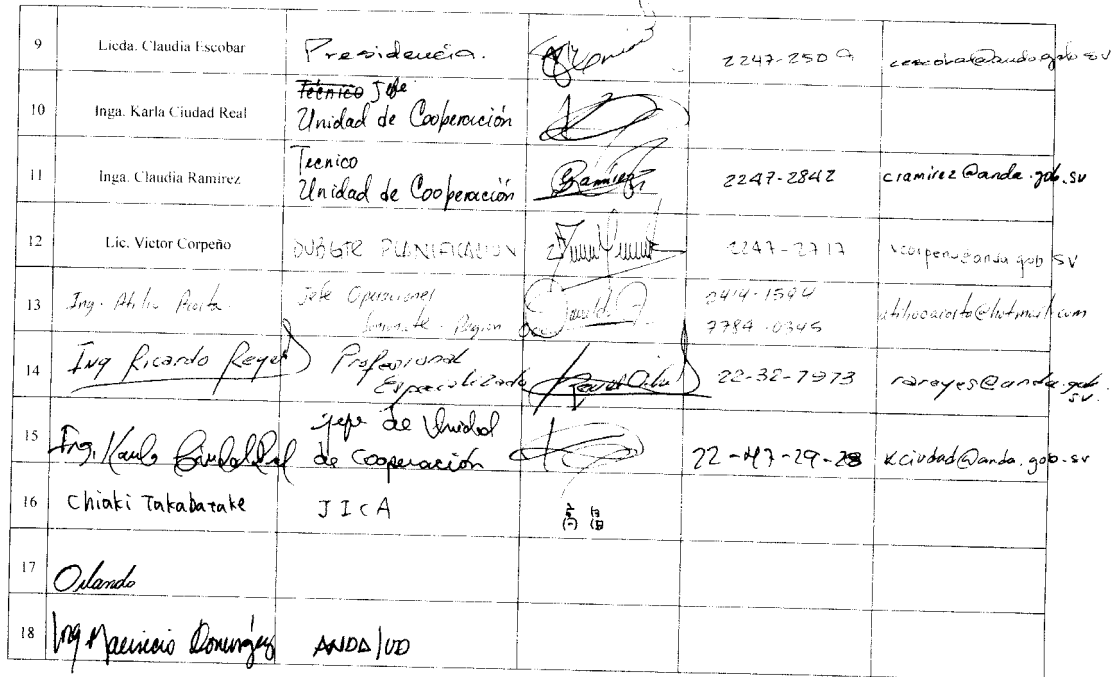 9 Licda. Claudia Escobar Presidencia. 2247-2509
10 Inga. Karla Ciudad Real Técnico Jefe
Unidad de Cooperación
11 Inga. Claudia Ramirez Tecnico
Unidad de Cooperación Ramirez 2247-2842 cramirez@anda.gob.sv
12 Lic. Victor Corpeño PLANIFICACION 2247-2717
13 Ing. Atilio Jefe Operacional
Region
7784-0345
14 Ing Ricardo Reyes Profesional
Especializado 22-32-7973 rareyes@anda.gob.
sv.
15 Ing. Karla Ciudad Real Jefe de Unidad
de Cooperación 22-47-29-28 kciudad@anda.gob.sv
16 Chiaki Takabatake JICA
17 Orlando
18 Ing Mauricio Dominguez ANDA/UD